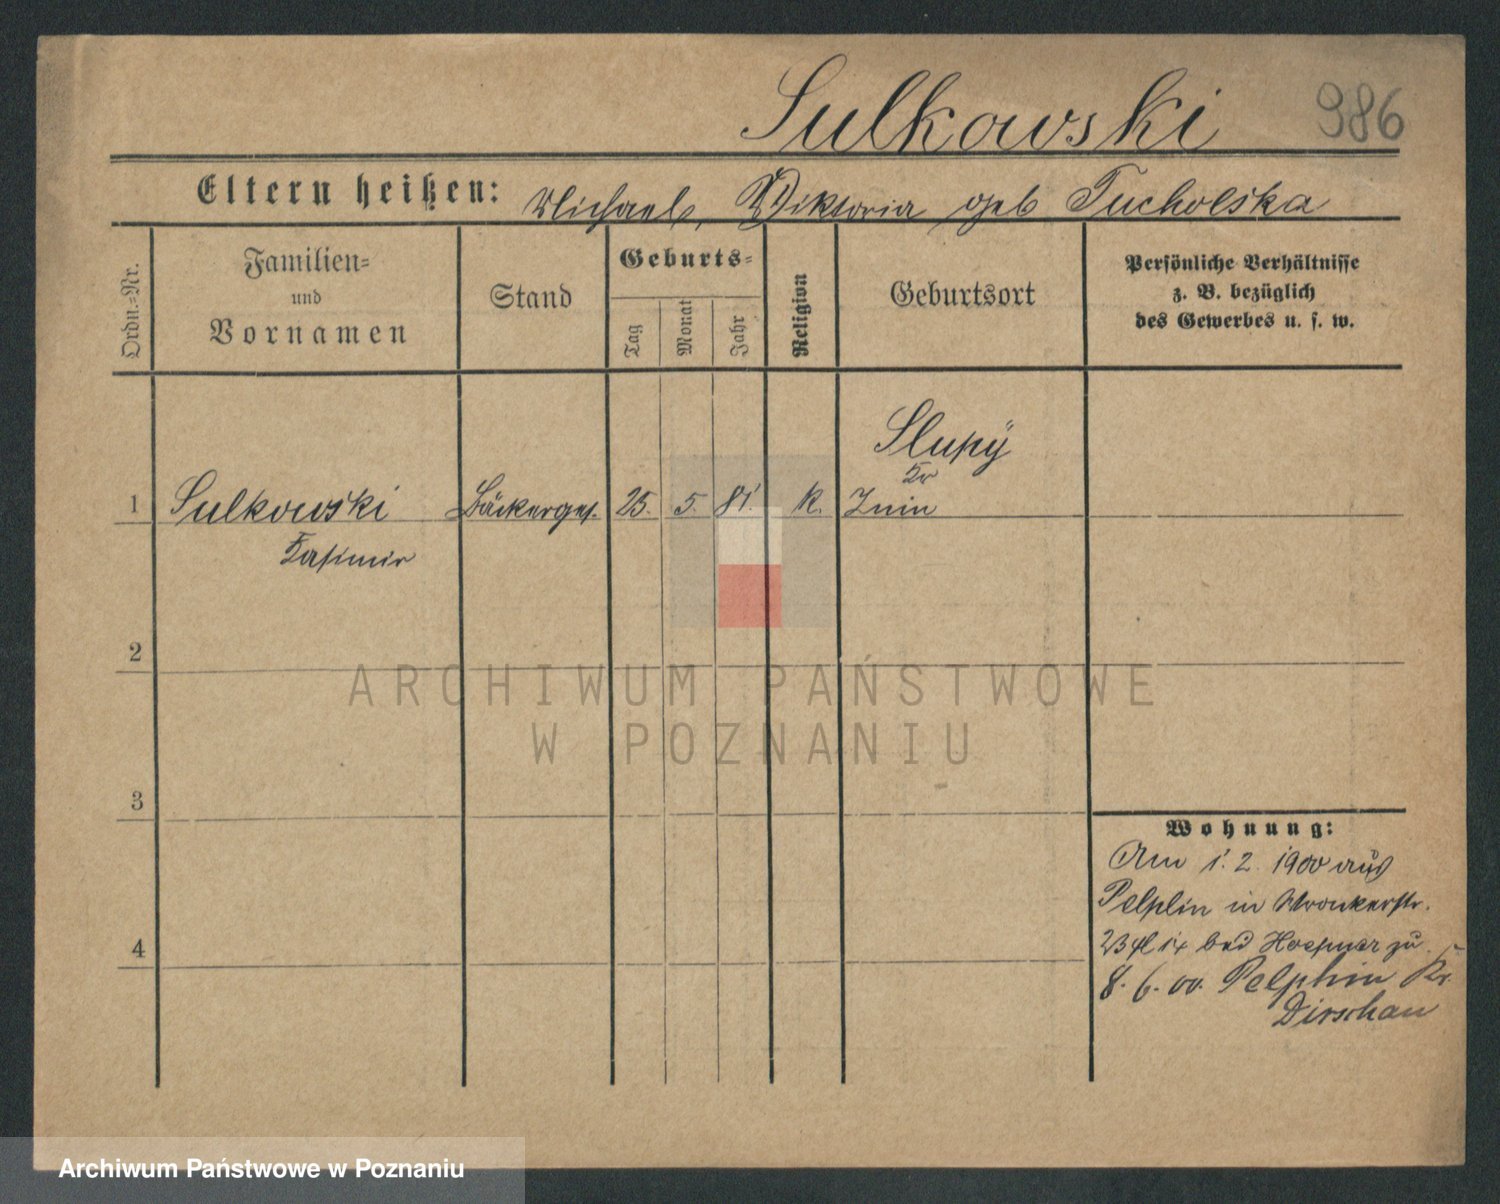 Sulkowski 986
Eltern heißen: Michael, Viktoria geb Tucholska
Ordn.-Nr.
Familien-
und
Vornamen
Stand
Geburts-
Tag
Monat
Jahr
Religion
Geburtsort
Persönliche Verhältnisse
z. B. bezüglich
des Gewerbes u. s. w.
Slupÿ
Kr
1 Sulkowski Bäckerges. 25. 5. 81 K. Znin
Kasimir
2
ARCHIWUM PAŃSTWOWE
W POZNANIU
3
Wohnung:
Am 1. 2. 1900 aus
Pelplin in Wronkerstr.
bei zu
4
8. 6. 00. Pelplin Kr.
Dirschau
Archiwum Państwowe w Poznaniu